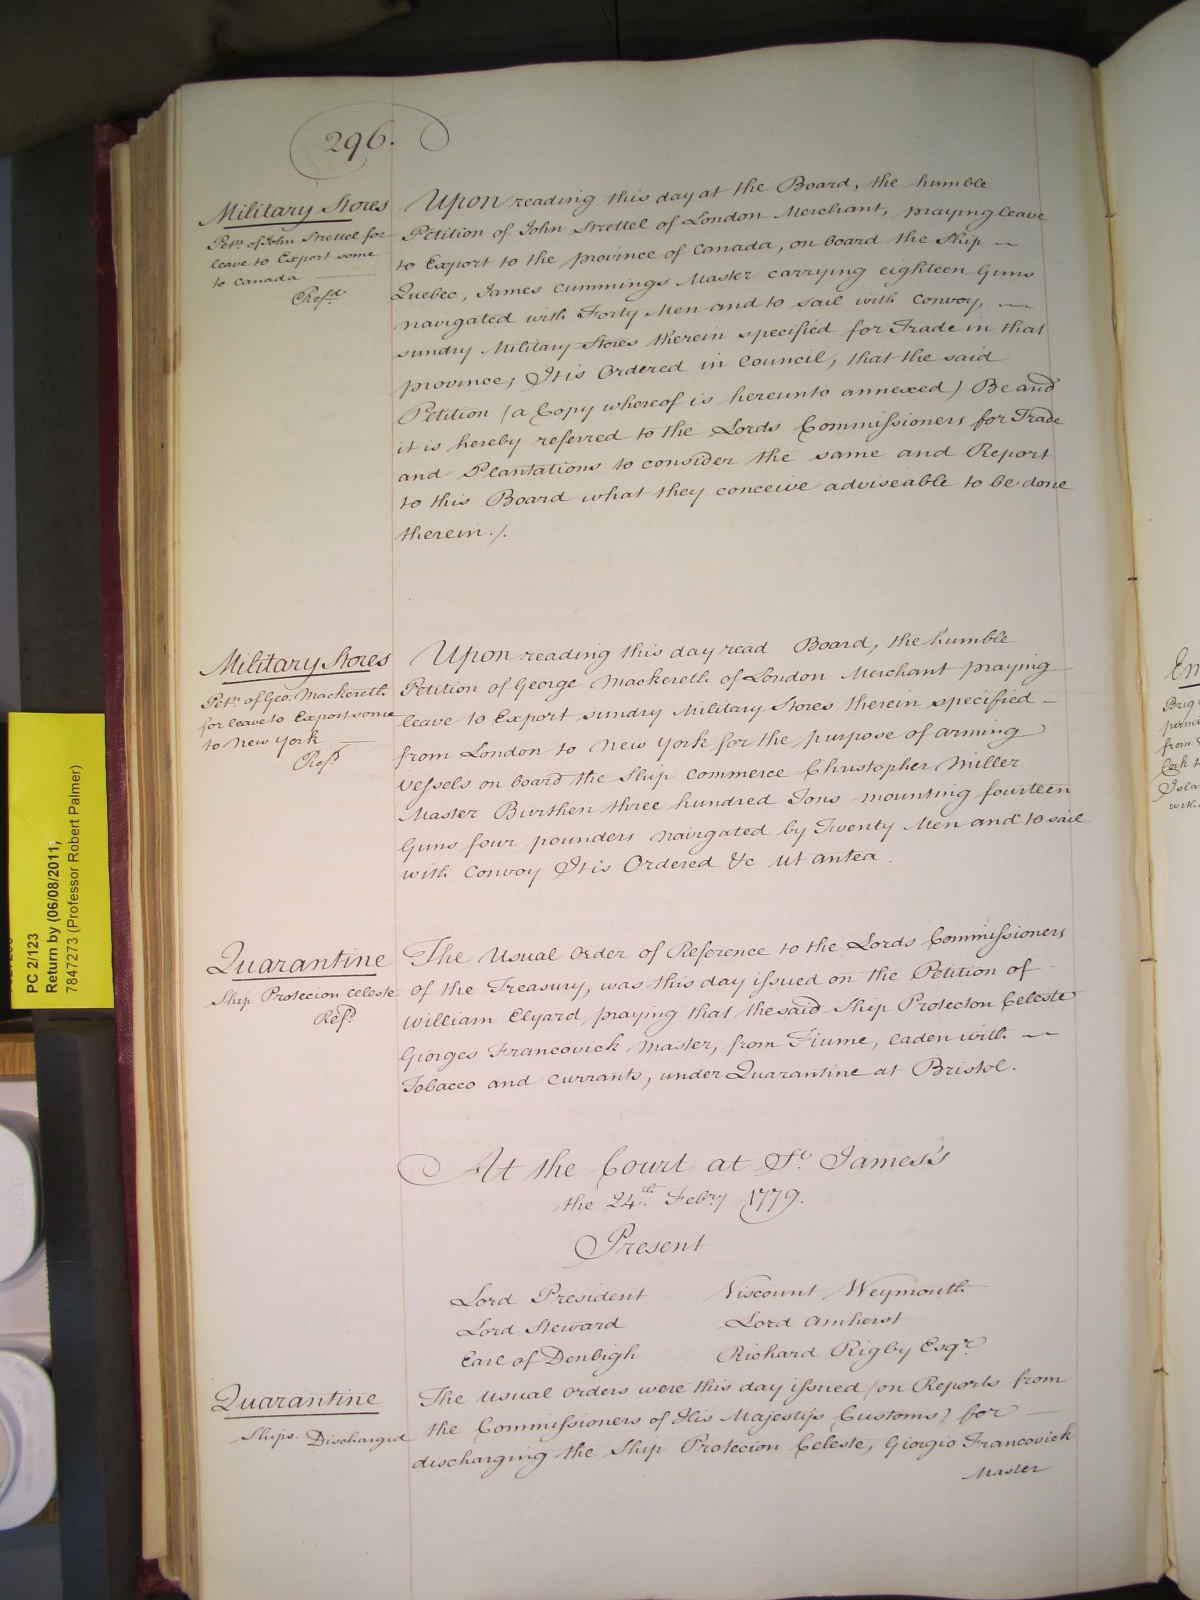 296.
Military Stores
Petn. of John Strettel for
leave to Export some
to Canada
Refd.
Upon reading this day at the Board, the humble
Petition of John Strettel of London Merchant, praying leave
to Export to the province of Canada, on board the Ship
Quebec, James Cummings Master carrying eighteen Guns
navigated with Forty Men and to sail with Convoy,
sundry Military Stores therein specified for Trade in that
province; It is Ordered in Council, that the said
Petition (a Copy whereof is hereunto annexed) Be and
it is hereby referred to the Lords Commissioners for Trade
and Plantations to consider the same and Report
to this Board what they conceive adviseable to be done
therein ./.
Military Stores
Petn. of Geo. Mackereth
for leave to Export some
to New York
Refd.
Upon reading this day read Board, the humble
Petition of George Mackereth of London Merchant praying
leave to Export sundry Military Stores therein specified
from London to New York for the purpose of arming
Vessels on board the Ship Commerce Christopher Miller
Master Burthen three hundred Tons mounting fourteen
Guns four pounders navigated by Twenty Men and to sail
with Convoy It is Ordered &c ut antea.
Quarantine
Ship Protecion Celeste
Refd.
The Usual Order of Reference to the Lords Commissioners
of the Treasury, was this day issued on the Petition of
William Elyard praying that the said Ship Protecton Celeste
Giorges Francovick Master, from Fiume, laden with
Tobacco and Currants, under Quarantine at Bristol.
At the Court at St. James's
the 24th. Febry 1779.
Present
Lord President Viscount Weymouth
Lord Steward Lord Amherst
Earl of Denbigh Richard Rigby Esqr.
Quarantine
Ships Discharged
The usual orders were this day issued (on Reports from
the Commissioners of His Majestys Customs) for
discharging the Ship Protecion Celeste, Giorgio Francovick
Master
PC 2/123
Return by (06/08/2011;
7847273 (Professor Robert Palmer)